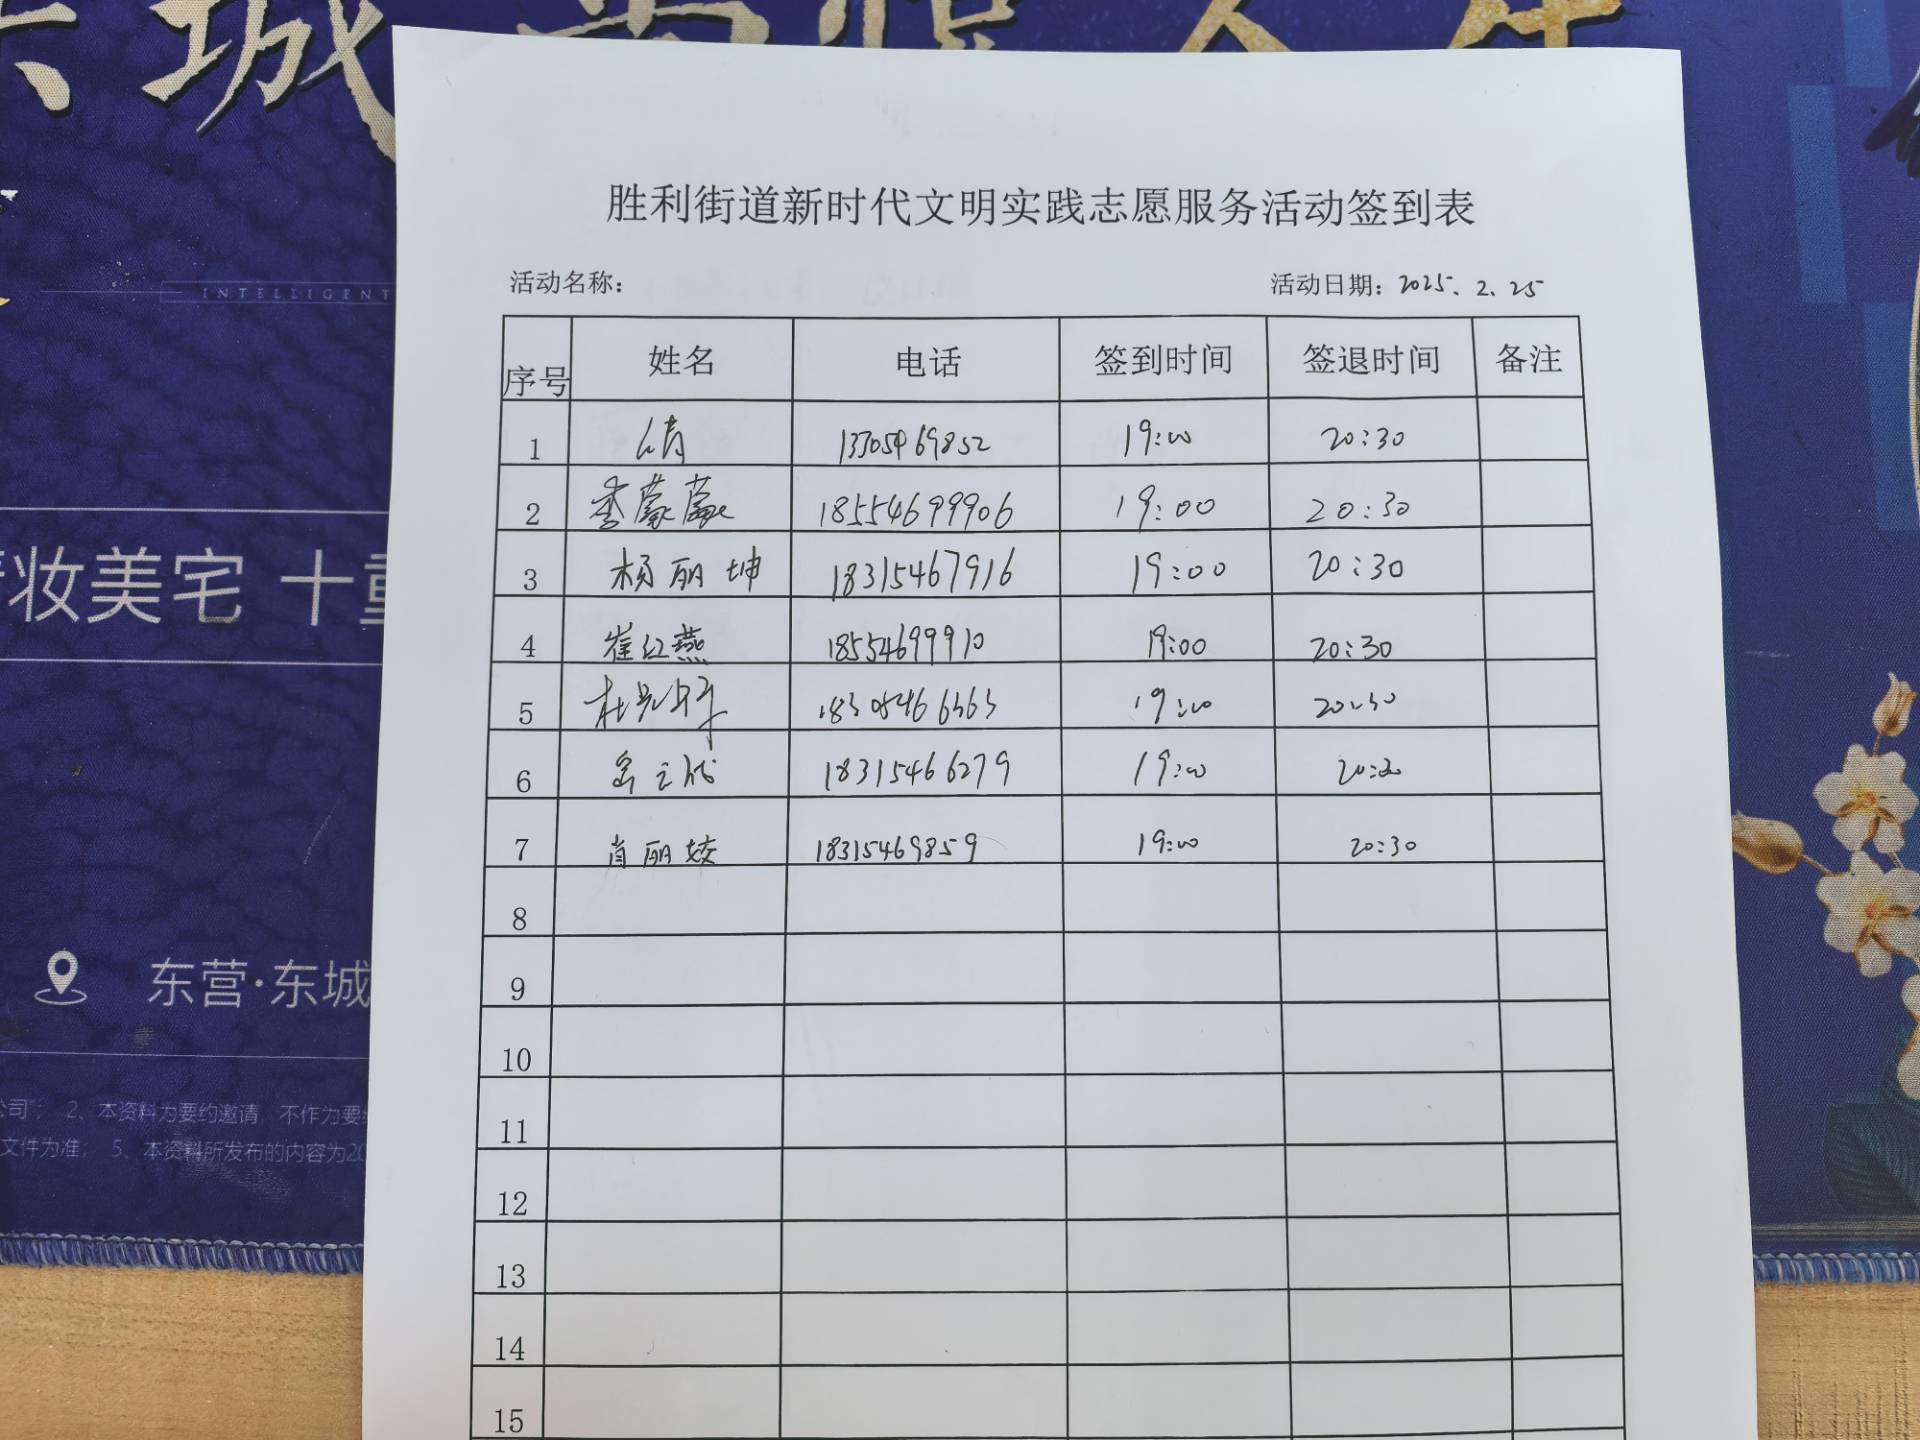 城
INTELLIGENT
妆美宅 十重
东营·东城
公司"; 2、本资料为要约邀请, 不作为要约
文件为准; 5、本资料所发布的内容为20
胜利街道新时代文明实践志愿服务活动签到表
活动名称: 活动日期: 2025.2.25
序号 姓名 电话 签到时间 签退时间 备注
1 13305469852 19:00 20:30
2 季蒙蒙 18554699906 19:00 20:30
3 杨丽坤 18315467916 19:00 20:30
4 崔红燕 18554699910 19:00 20:30
5 19:00 20:30
6 18315466279 19:00 20:30
7 肖丽姣 18315469859 19:00 20:30
8
9
10
11
12
13
14
15